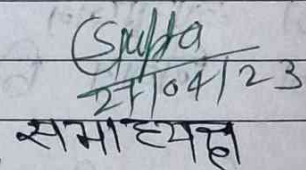 Gupta
27/04/23
सभाध्यक्ष